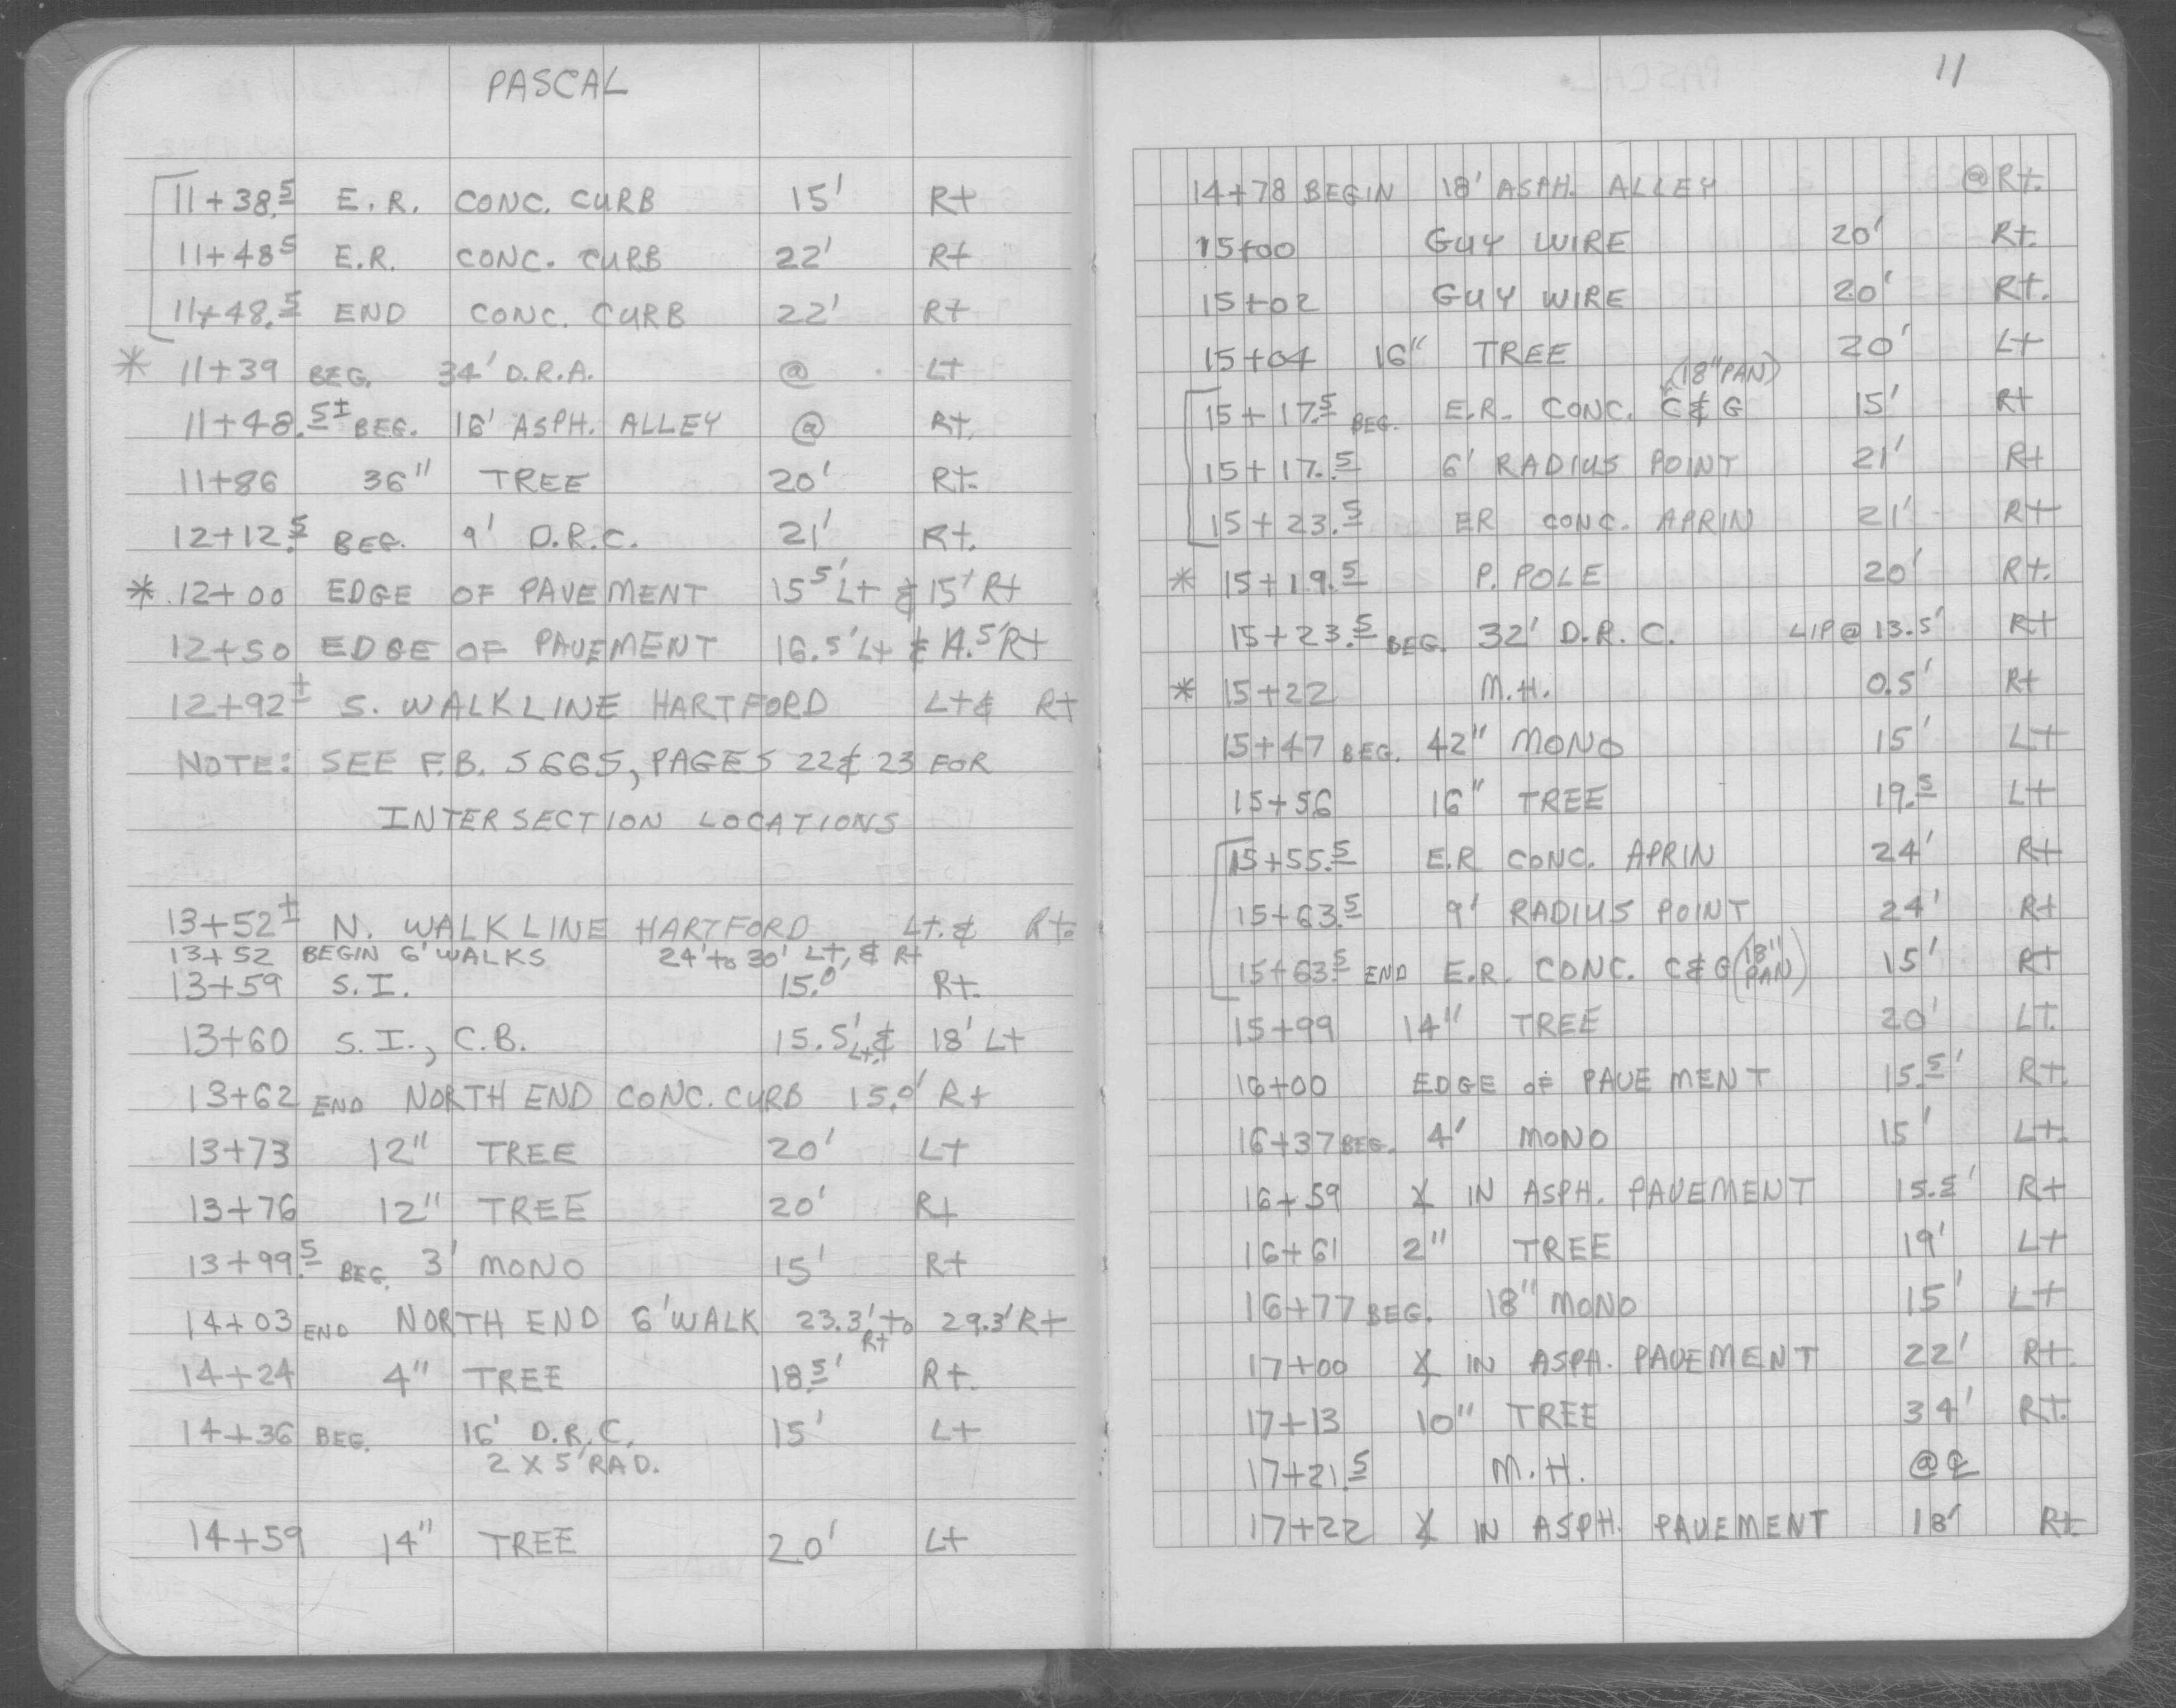 PASCAL
11+38.5 E.R. CONC. CURB 15' Rt
11+48.5 E.R. CONC. CURB 22' Rt
11+48.5 END CONC. CURB 22' Rt
* 11+39 BEG. 34' D.R.A. @ Lt
11+48.5± BEG. 16' ASPH. ALLEY @ Rt.
11+86 36" TREE 20' Rt.
12+12.5 BEG. 9' D.R.C. 21' Rt.
* 12+00 EDGE OF PAVEMENT 15 5' Lt & 15' Rt
12+50 EDGE OF PAVEMENT 16.5' Lt & 14.5' Rt
12+92± S. WALK LINE HARTFORD Lt & Rt
NOTE: SEE F.B. 5665, PAGES 22 & 23 FOR
INTERSECTION LOCATIONS
13+52± N. WALK LINE HARTFORD Lt. & Rt.
13+52 BEGIN 6' WALKS 24' to 30' Lt, & Rt
13+59 S.I. 15.0' Rt.
13+60 S.I., C.B. 15.5' Lt. & 18' Lt
13+62 END NORTH END CONC. CURB 15.0' Rt
13+73 12" TREE 20' Lt
13+76 12" TREE 20' Rt
13+99.5 BEG. 3' MONO 15' Rt
14+03 END NORTH END 6' WALK 23.3' Rt to 29.3' Rt
14+24 4" TREE 18.5' Rt.
14+36 BEG. 16' D.R.C. 15' Lt
2 X 5' RAD.
14+59 14" TREE 20' Lt
11
14+78 BEGIN 18' ASPH. ALLEY @ Rt.
15+00 GUY WIRE 20' Rt.
15+02 GUY WIRE 20' Rt.
15+04 16" TREE 20' Lt
(18" PAN)
15+17.5 BEG. E.R. CONC. C & G 15' Rt
15+17.5 6' RADIUS POINT 21' Rt
15+23.5 ER CONC. APRIN 21' Rt
* 15+19.5 P. POLE 20' Rt.
15+23.5 BEG. 32' D.R.C. LIP @ 13.5' Rt
* 15+22 M.H. 0.5' Rt
15+47 BEG. 42" MONO 15' Lt
15+56 16" TREE 19.5 Lt
15+55.5 E.R CONC. APRIN 24' Rt
15+63.5 9' RADIUS POINT 24' Rt
15+63.5 END E.R. CONC. C & G (18" PAN) 15' Rt
15+99 14" TREE 20' Lt.
16+00 EDGE OF PAVEMENT 15.5' Rt.
16+37 BEG. 4' MONO 15' Lt.
16+59 X IN ASPH. PAVEMENT 15.5' Rt
16+61 2" TREE 19' Lt
16+77 BEG. 18" MONO 15' Lt
17+00 X IN ASPH. PAVEMENT 22' Rt.
17+13 10" TREE 34' Rt.
17+21.5 M.H. @ ℄
17+22 X IN ASPH. PAVEMENT 18' Rt